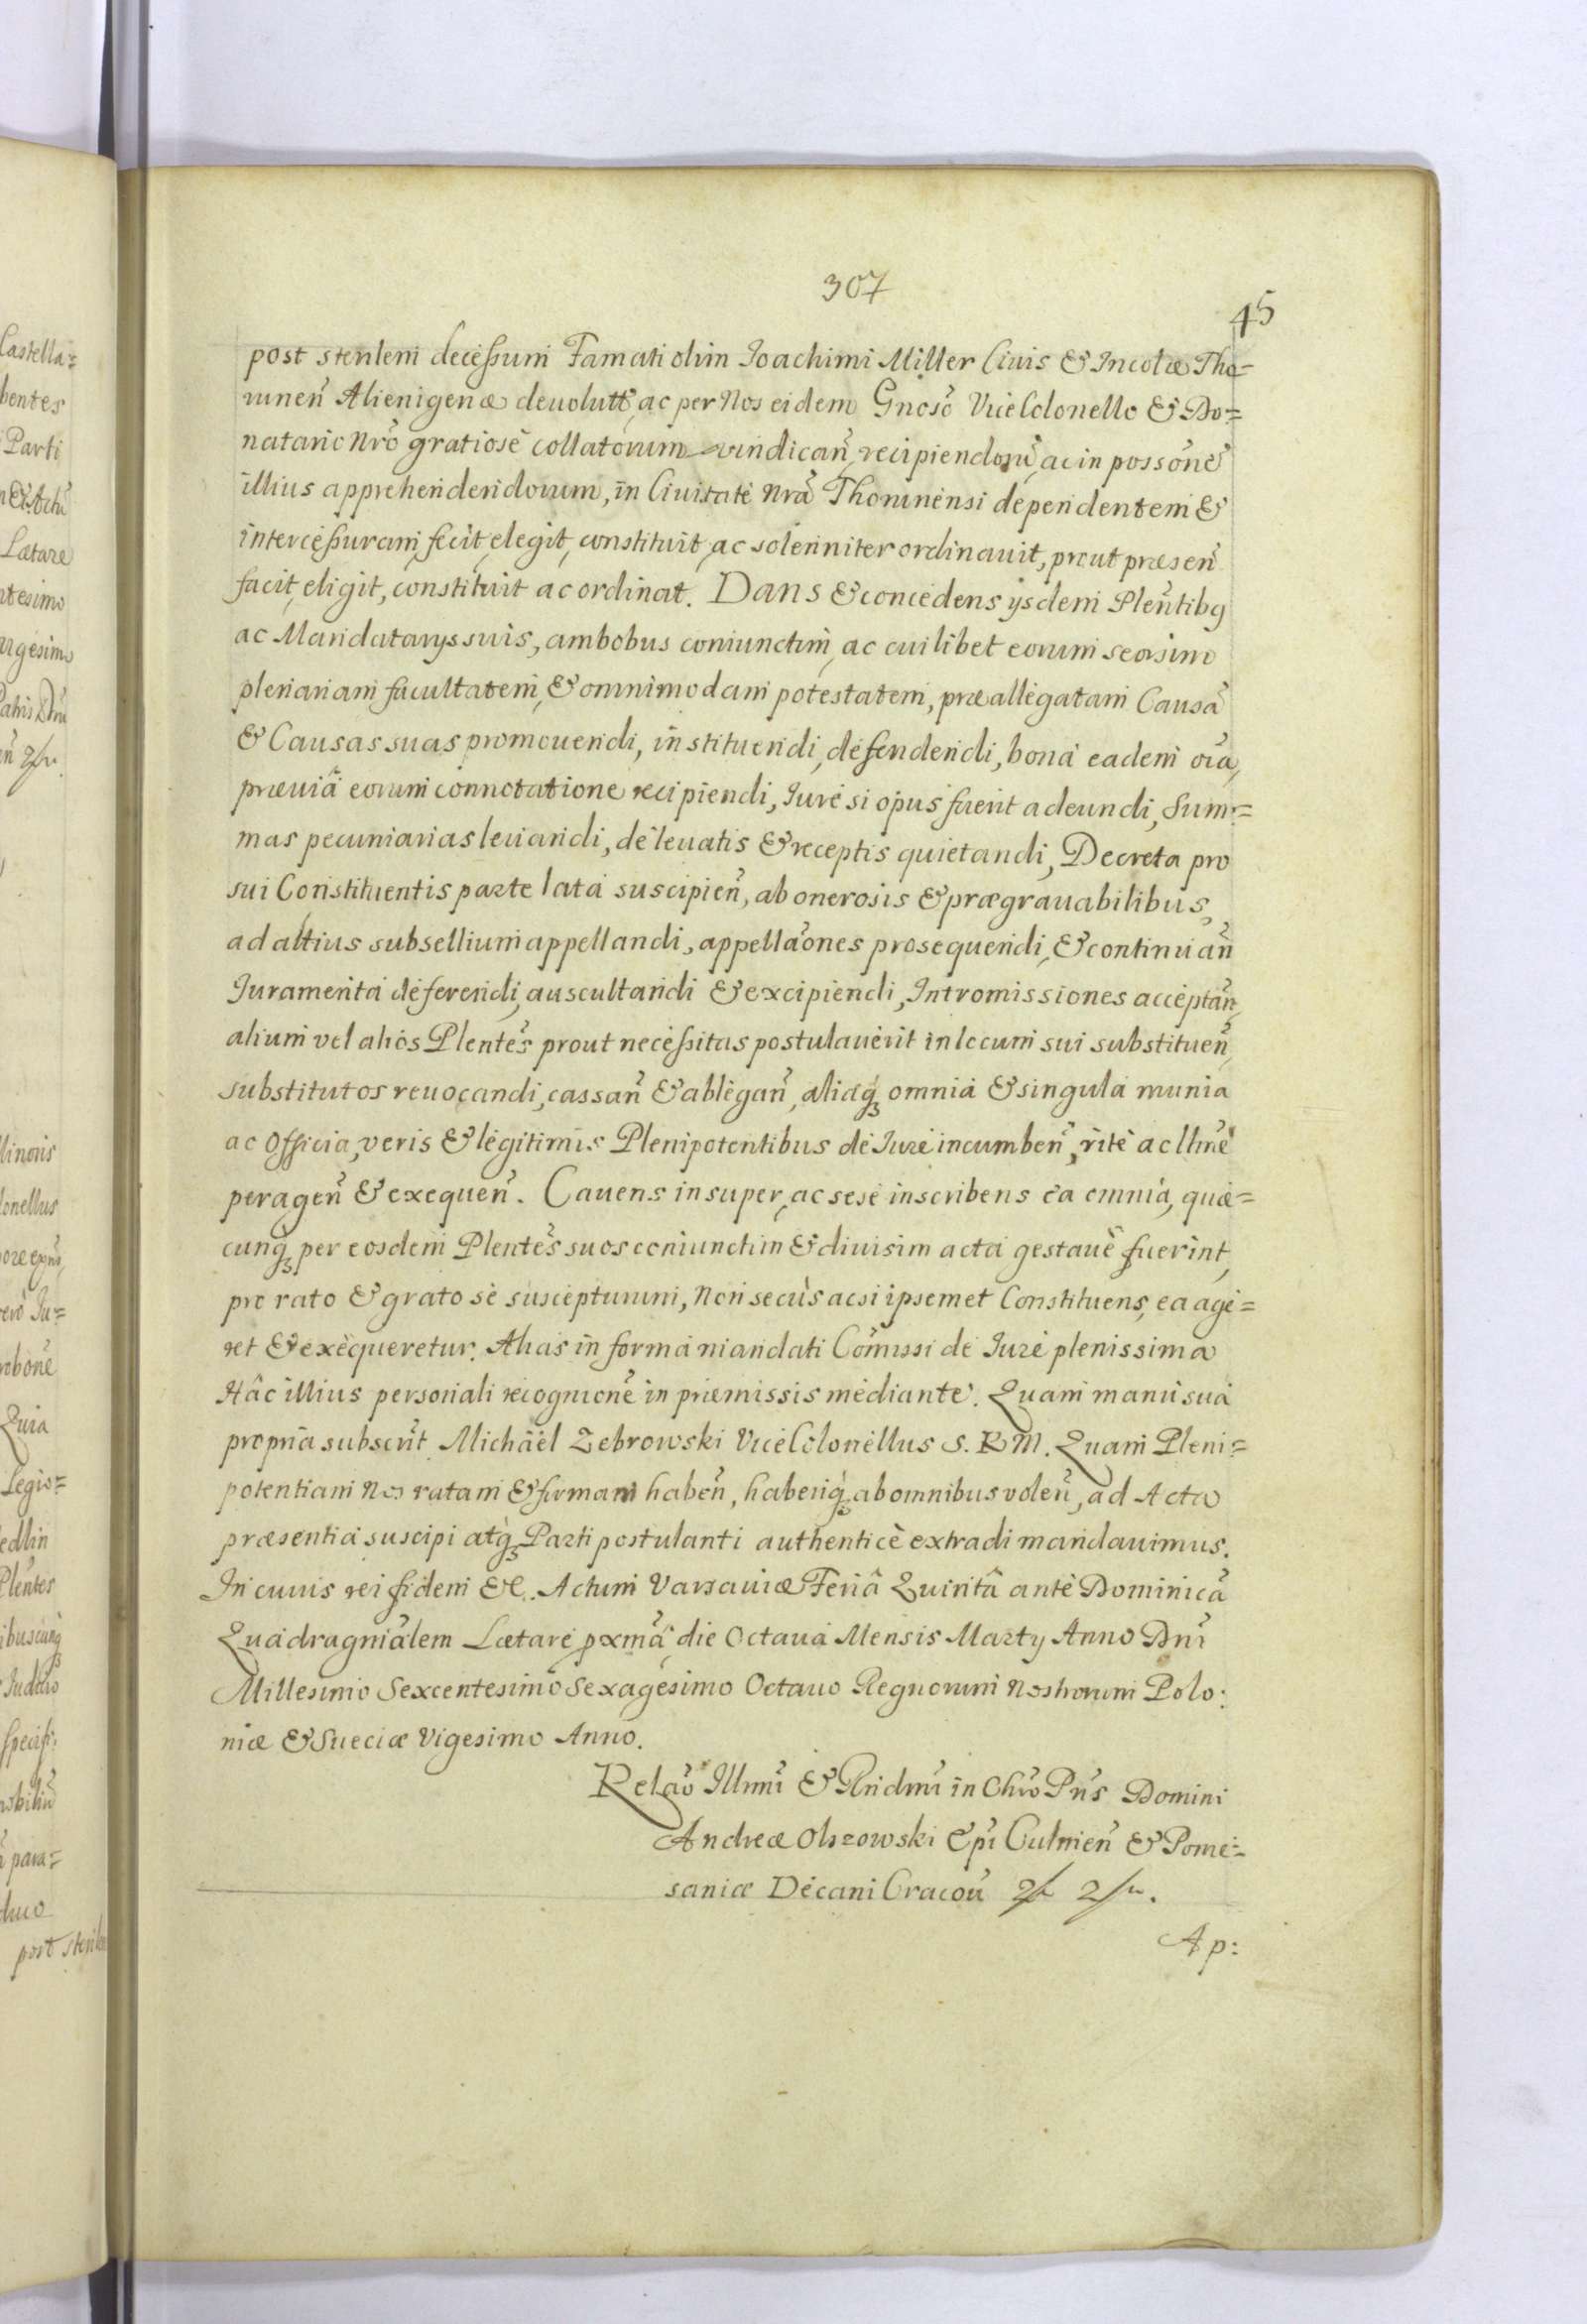 307
45
post sterilem decessum Famati olim Joachimi Miller Civis & Incolæ Tho=
runeñ Alienigenæ devolutt̃, ac per Nos eidem Gnoso Vice Colonello & Do=
natario Nrõ gratiosè collatorum vindicañ, recipiendorũ, ac in possonẽ
illius apprehendendorum, in Civitate Nrã Thorunensi dependentem &
intercessuram, fecit, elegit, constituit, ac solenniter ordinavit, prout præseñ
facit, eligit, constituit ac ordinat. Dans & concedens ijsdem Plentibq
ac Mandatarys suis, ambobus coniunctim, ac cuilibet eorum seorsim
plenariam facultatem, & omnimodam potestatem, præallegatam Causã
& Causas suas promovendi, instituendi, defendendi, bona eadem oĩa,
præviâ eorum connotatione recipiendi, Jure si opus fuerit adeundi, Sum=
mas pecuniarias levandi, de levatis & receptis quietandi, Decreta pro
sui Constituentis parte lata suscipieñ, ab onerosis & prægravabilibus,
ad altius subsellium appellandi, appellaões prosequendi, & continuañ
Juramenta deferendi, auscultandi & excipiendi, Intromissiones acceptañ,
alium vel alios Plentes prout necessitas postulaverit in locum sui substitueñ,
substitutos revocandi, cassañ & ablegañ, aliaq́ omnia & singula munia
ac Officia, veris & legitimis Plenipotentibus de Jure incumbeñ, ritè ac lĩmè
perageñ & exequeñ. Cavens insuper, ac sese inscribens ea omnia, quæ=
cunq́ per eosdem Plentes suos coniunctim & divisim acta gestave fuerint,
pro rato & grato se suscepturum, Non secùs acsi ipsemet Constituens, ea age=
ret & exequeretur. Alias in forma mandati Com̃issi de Jure plenissima
Hâc illius personali recognionẽ in præmissis mediante. Quam manu sua
propria subscrit Michaël Zebrowski Vice Colonellus S. R M. Quam Pleni=
potentiam Nos ratam & firmam habeñ, haberiq́ ab omnibus voleñ, ad Acta
præsentia suscipi atq́ Parti postulanti authenticè extradi mandavimus.
In cuius rei fidem &c. Actum Varsaviæ Feriâ Quintâ ante Dominicã
Quadragniãlem Lætare pxmã, die Octava Mensis Marty Anno Dni
Millesimo Sexcentesimo Sexagesimo Octavo Regnorum Nostrorum Polo:
niæ & Sueciæ Vigesimo Anno.
Relaõ Illmi & Rndmi in Chro Pris Domini
Andreæ Olszowski Epi Culmeñ & Pome=
saniæ Decani Cracoṽ
Ap: